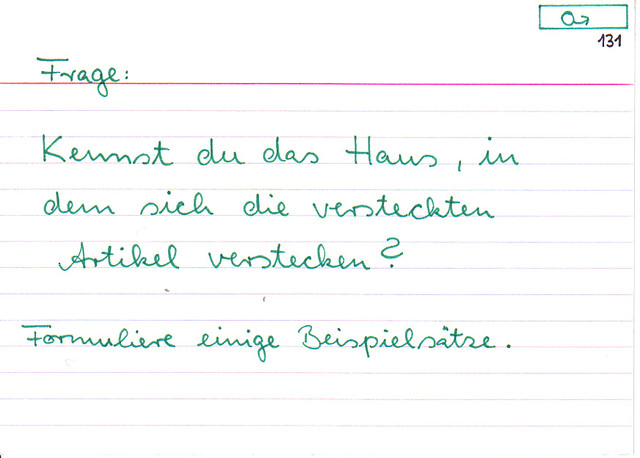 131
Frage:
Kennst du das Haus, in
dem sich die versteckten
Artikel verstecken?
Formuliere einige Beispielsätze.